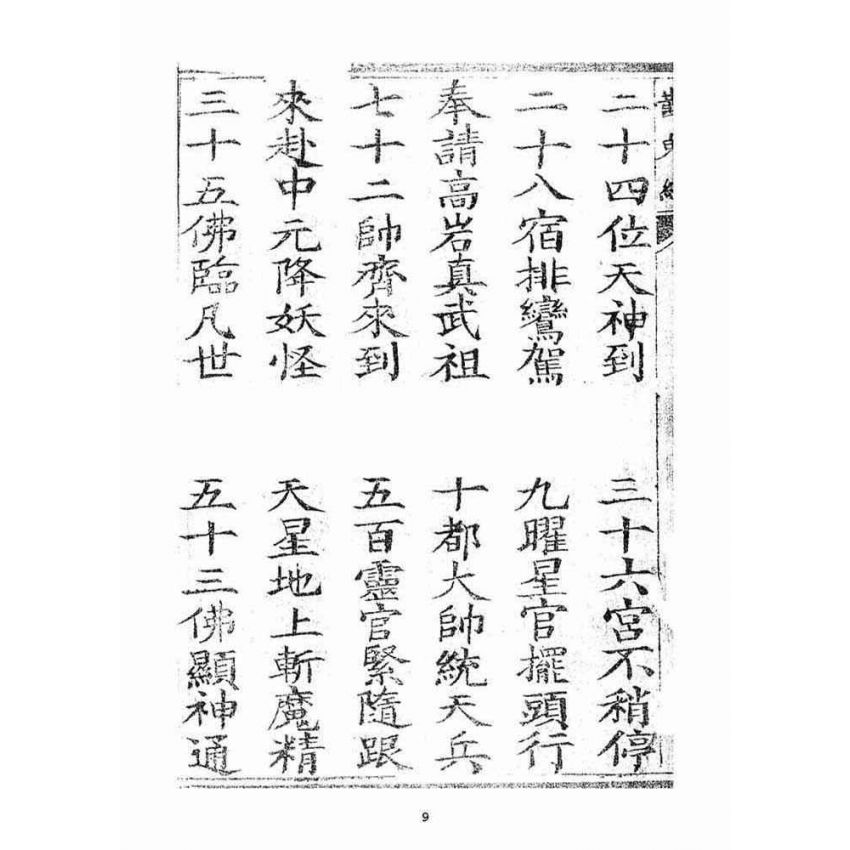 二十四位天神到　三十六宮不稍停
二十八宿排鸞駕　九曜星官擺頭行
奉請高岩真武祖　十都大帥統天兵
七十二帥齊來到　五百靈官緊隨跟
來赴中元降妖怪　天星地上斬魔精
三十五佛臨凡世　五十三佛顯神通
9